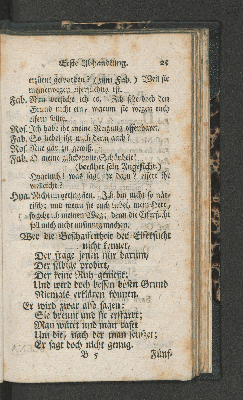 Erste Abhandlung. 25
erzürnt geworden? (zum Fab.) Weil sie
meinetwegen eifersüchtig ist.
Fab. Nun versteh ich es. Ich sehe doch den
Grund nicht ein, warum sie wegen euch
eifern sollte.
Ros. Ich habe ihr meine Neigung offenbaret.
Fab. So liebet ihr mich denn auch?
Ros. Nur gar zu gewiß.
Fab. O meine Schönheit!
(berühret sein Angesicht.)
Hyacinth! was sagt ihr dazu? eifert ihr
vielleicht?
Hya. Nichts weniger. Ich bin nicht so när-
risch; und wenn sie auch liebet, mein Herr,
so gehe ich meinen Weg; denn die Eifersucht
soll mich nicht unsinnig machen.
Wer die Beschaffenheit der Eifersucht
nicht kennet,
Der frage jenen nur darum,
Der selbige probirt,
Der keine Ruh genießt;
Und wird doch dessen besten Grund
Niemals erklären können.
Er wird zwar also sagen:
Sie brennt und sie erstarrt;
Man wütet und man raset
Um die, nach der man seufzet;
Er sagt doch nicht genug.
B 5 Fünf-